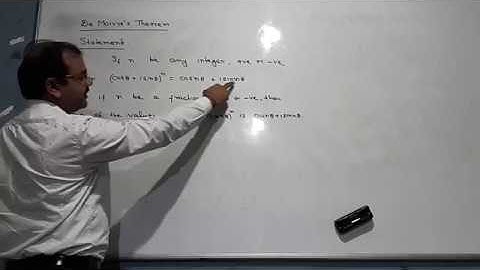 De Moivre's Theorem
Statement
If n be any integer, +ve or -ve
(cosθ + isinθ)ⁿ = cosnθ + isinnθ
if n be a fraction or -ve, then
of the values θ)ⁿ is cosnθ+isinnθ